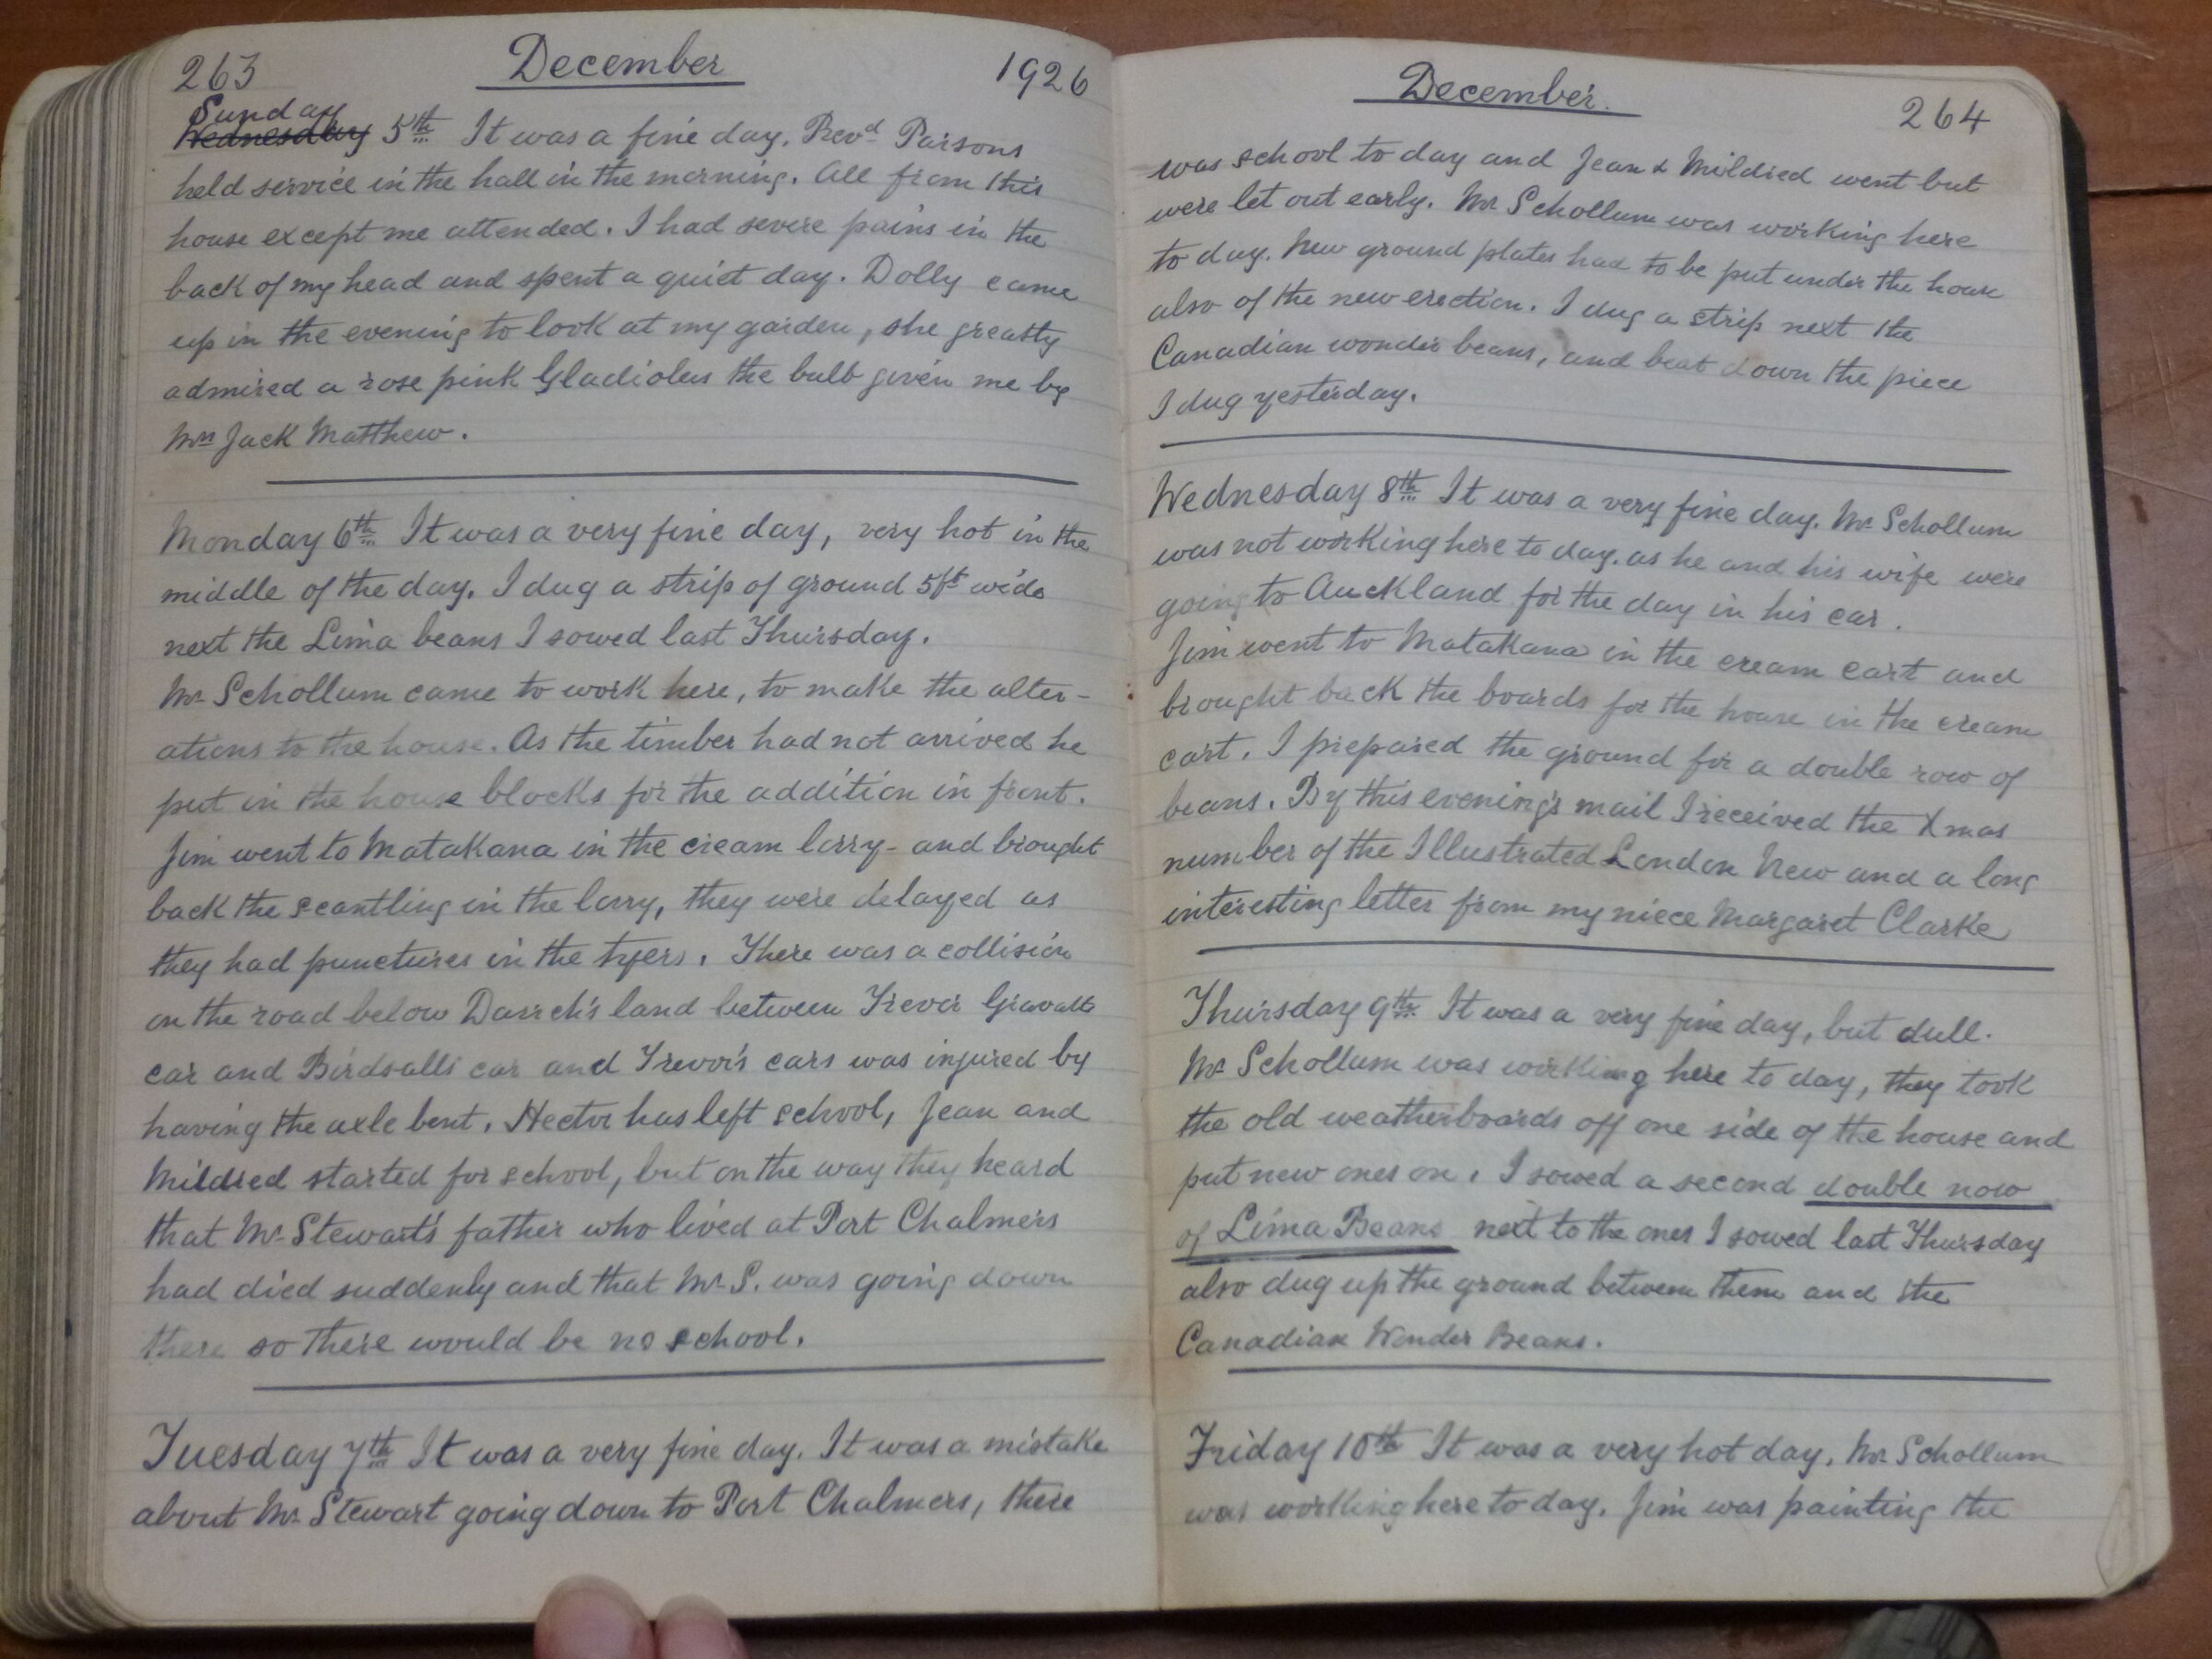 263 December 1926
Sunday
Wednesday 5th It was a fine day. Revd Parsons
held service in the hall in the morning. All from this
house except me attended. I had severe pains in the
back of my head and spent a quiet day. Dolly came
up in the evening to look at my garden, she greatly
admired a rose pink Gladiolus the bulb given me by
Mrs Jack Matthew.
Monday 6th It was a very fine day, very hot in the
middle of the day. I dug a strip of ground 5ft wide
next the Lima beans I sowed last Thursday.
Mr Schollum came to work here, to make the alter-
ations to the house. As the timber had not arrived he
put in the house blocks for the addition in front.
Jim went to Matakana in the cream lorry - and brought
back the scantling in the lorry, they were delayed as
they had punctures in the tyers. There was a collision
on the road below Darrch's land between Trevor Gravatts
car and Birdsalls car and Trevor's cars was injured by
having the axle bent. Hector has left school, Jean and
Mildred started for school, but on the way they heard
that Mr Stewart's father who lived at Port Chalmers
had died suddenly and that Mr S. was going down
there so there would be no school.
Tuesday 7th It was a very fine day. It was a mistake
about Mr Stewart going down to Port Chalmers, there
December. 264
was school to day and Jean & Mildred went but
were let out early. Mr Schollum was working here
to day. New ground plates had to be put under the house
also of the new erection. I dug a strip next the
Canadian wonder beans, and beat down the piece
I dug yesterday.
Wednesday 8th It was a very fine day. Mr Schollum
was not working here to day. as he and his wife were
going to Auckland for the day in his car.
Jim went to Matakana in the cream cart and
brought back the boards for the house in the cream
cart. I prepared the ground for a double row of
beans. By this evening's mail I received the Xmas
number of the Illustrated London New and a long
interesting letter from my niece Margaret Clarke
Thursday 9th It was a very fine day, but dull.
Mr Schollum was working here to day, they took
the old weatherboards off one side of the house and
put new ones on. I sowed a second double now
of Lima Beans next to the ones I sowed last Thursday
also dug up the ground between them and the
Canadian Wonder Beans.
Friday 10th It was a very hot day. Mr Schollum
was working here to day. Jim was painting the